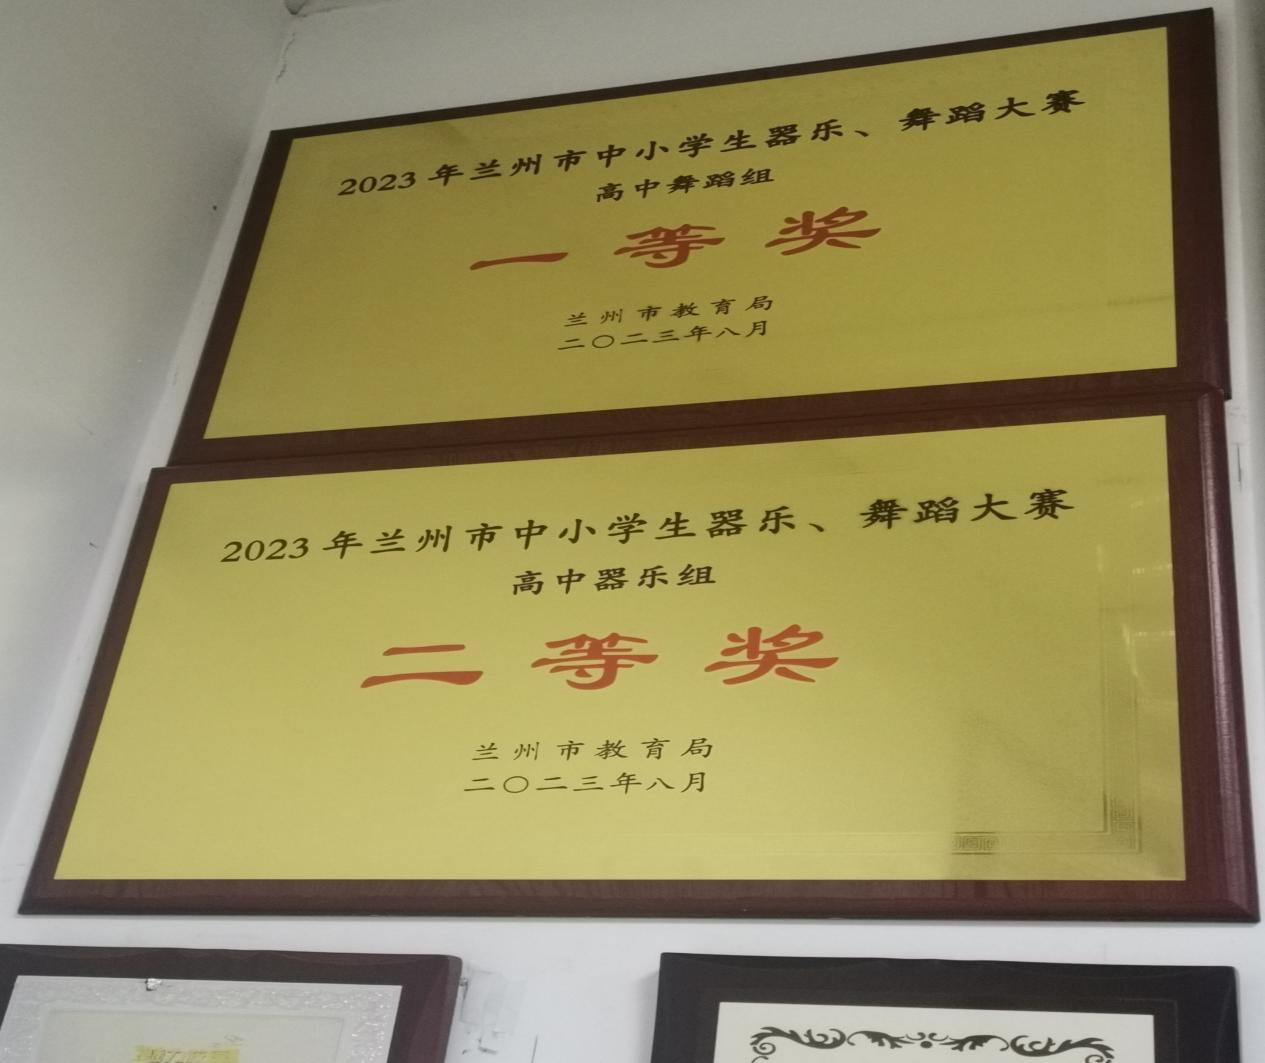 2023年兰州市中小学生器乐、舞蹈大赛
高中舞蹈组
一等奖
兰州市教育局
二〇二三年八月
2023年兰州市中小学生器乐、舞蹈大赛
高中器乐组
二等奖
兰州市教育局
二〇二三年八月